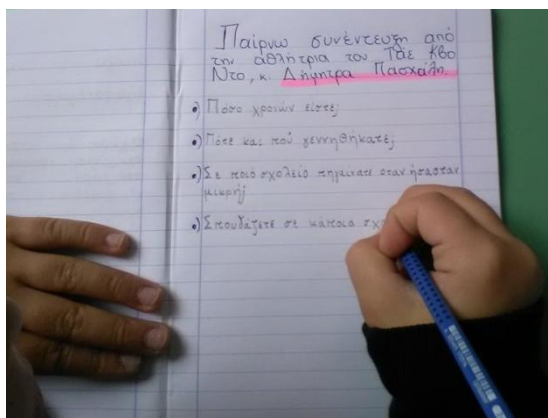 Παίρνω συνέντευξη από
την αθλήτρια του Τάε Κβο
Ντο, κ. Δήμητρα Πασχάλη.
•) Πόσο χρονών είστε;
•) Πότε και πού γεννηθήκατε;
•) Σε ποιό σχολείο πηγαίνατε όταν ήσασταν
μικρή;
•) Σπουδάζετε σε κάποια σχ